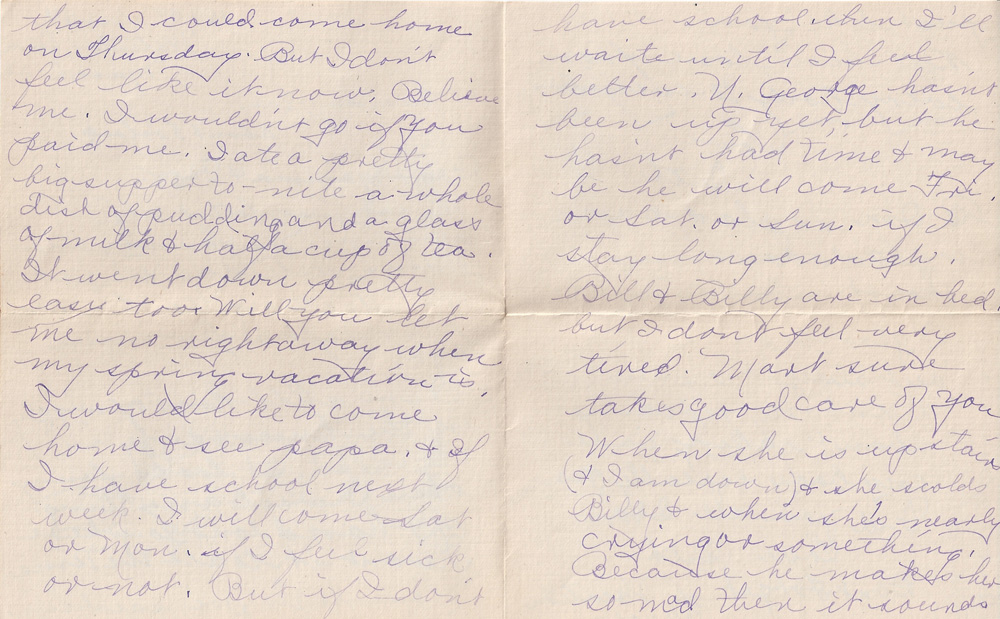 that I could come home
on Thursday. But I don't
feel like it now. Believe
me. I wouldn't go if you
paid me. I ate a pretty
big supper to-nite a whole
dish of pudding and a glass
of milk & half a cup of tea.
It went down pretty
easy too. Will you let
me no right away when
my spring vacation is.
I would like to come
home & see papa. & If
I have school next
week. I will come Sat
or Mon. if I feel sick
or not. But if I don't
have school then I'll
waite until I feel
better. U. George hasn't
been up yet, but he
hasnt had time & may
be he will come Fri.
or Sat. or Sun. if I
stay long enough.
Bill & Billy are in bed
but I don't feel very
tired. Mart sure
takes good care of you
When she is upstairs
(& I am down) & she scolds
Billy & when she's nearly
crying or something.
Because he makes her
so mad then it sounds